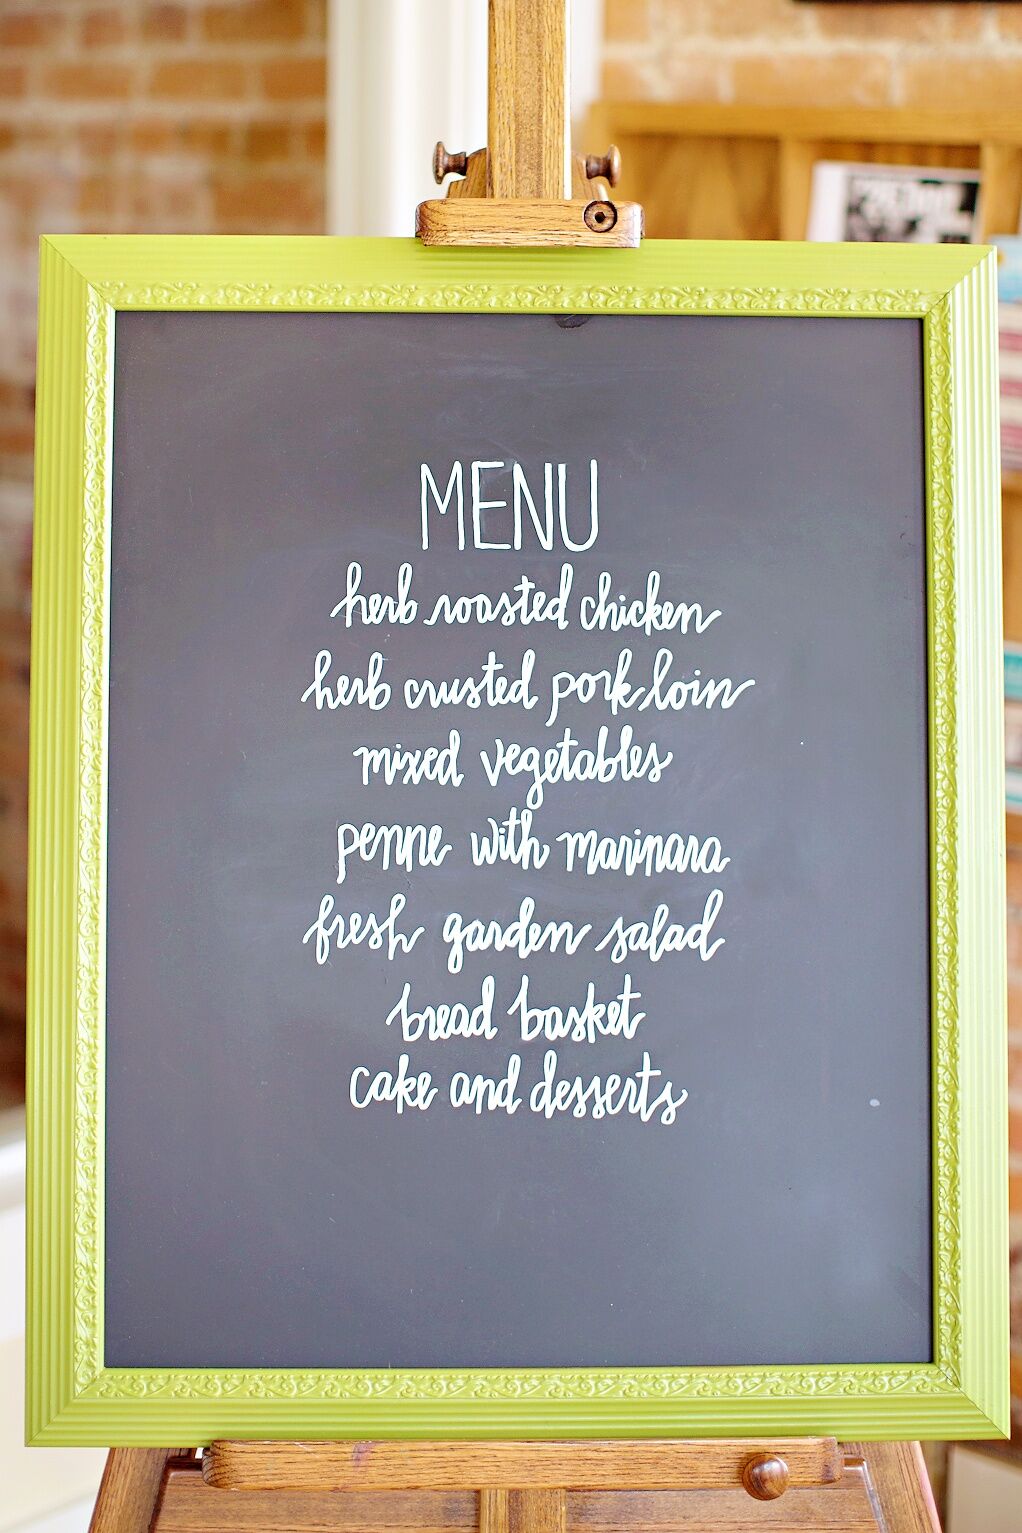 MENU
herb roasted chicken
herb crusted pork loin
mixed vegetables
penne with marinara
fresh garden salad
bread basket
cake and desserts